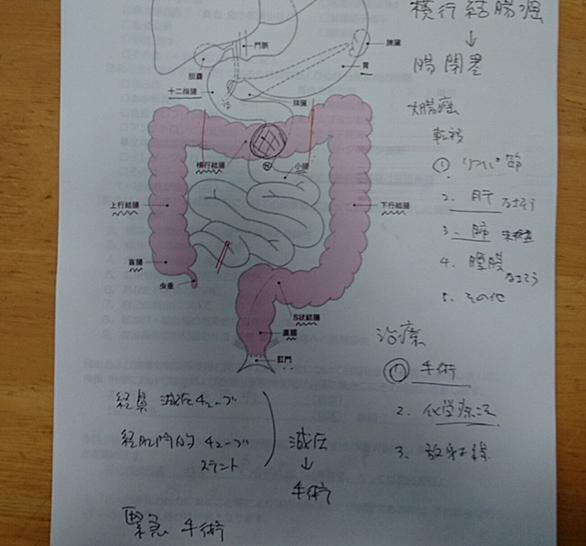 横行結腸癌
↓
腸閉塞
門脈
脾臓
胃
胆嚢
十二指腸
膵臓
横行結腸
小腸
上行結腸
下行結腸
盲腸
虫垂
S状結腸
直腸
肛門
大腸癌
転移
① リンパ節
2. 肝 なさそう
3. 肺 未検査
4. 腹膜 なさそう
5. その他
治療
① 手術
2. 化学療法
3. 放射線
経鼻 減圧チューブ
経肛門的 チューブ
ステント
減圧
↓
手術
緊急 手術